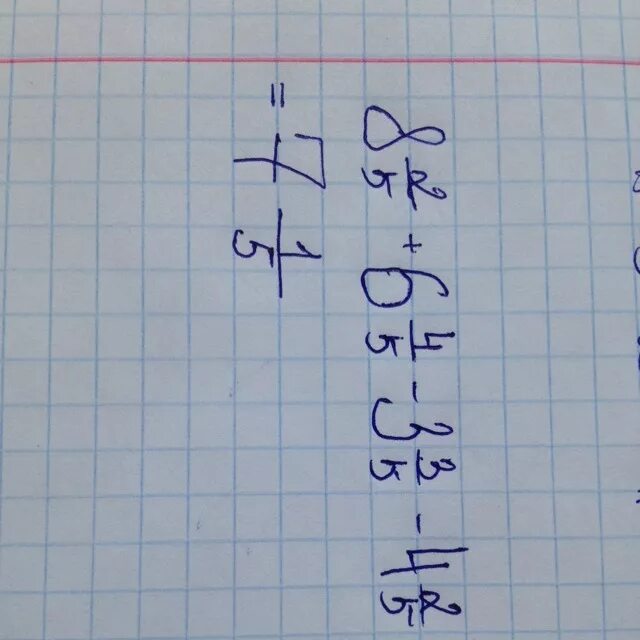 8 2/5 + 6 4/5 - 3 3/5 - 4 2/5
= 7 1/5